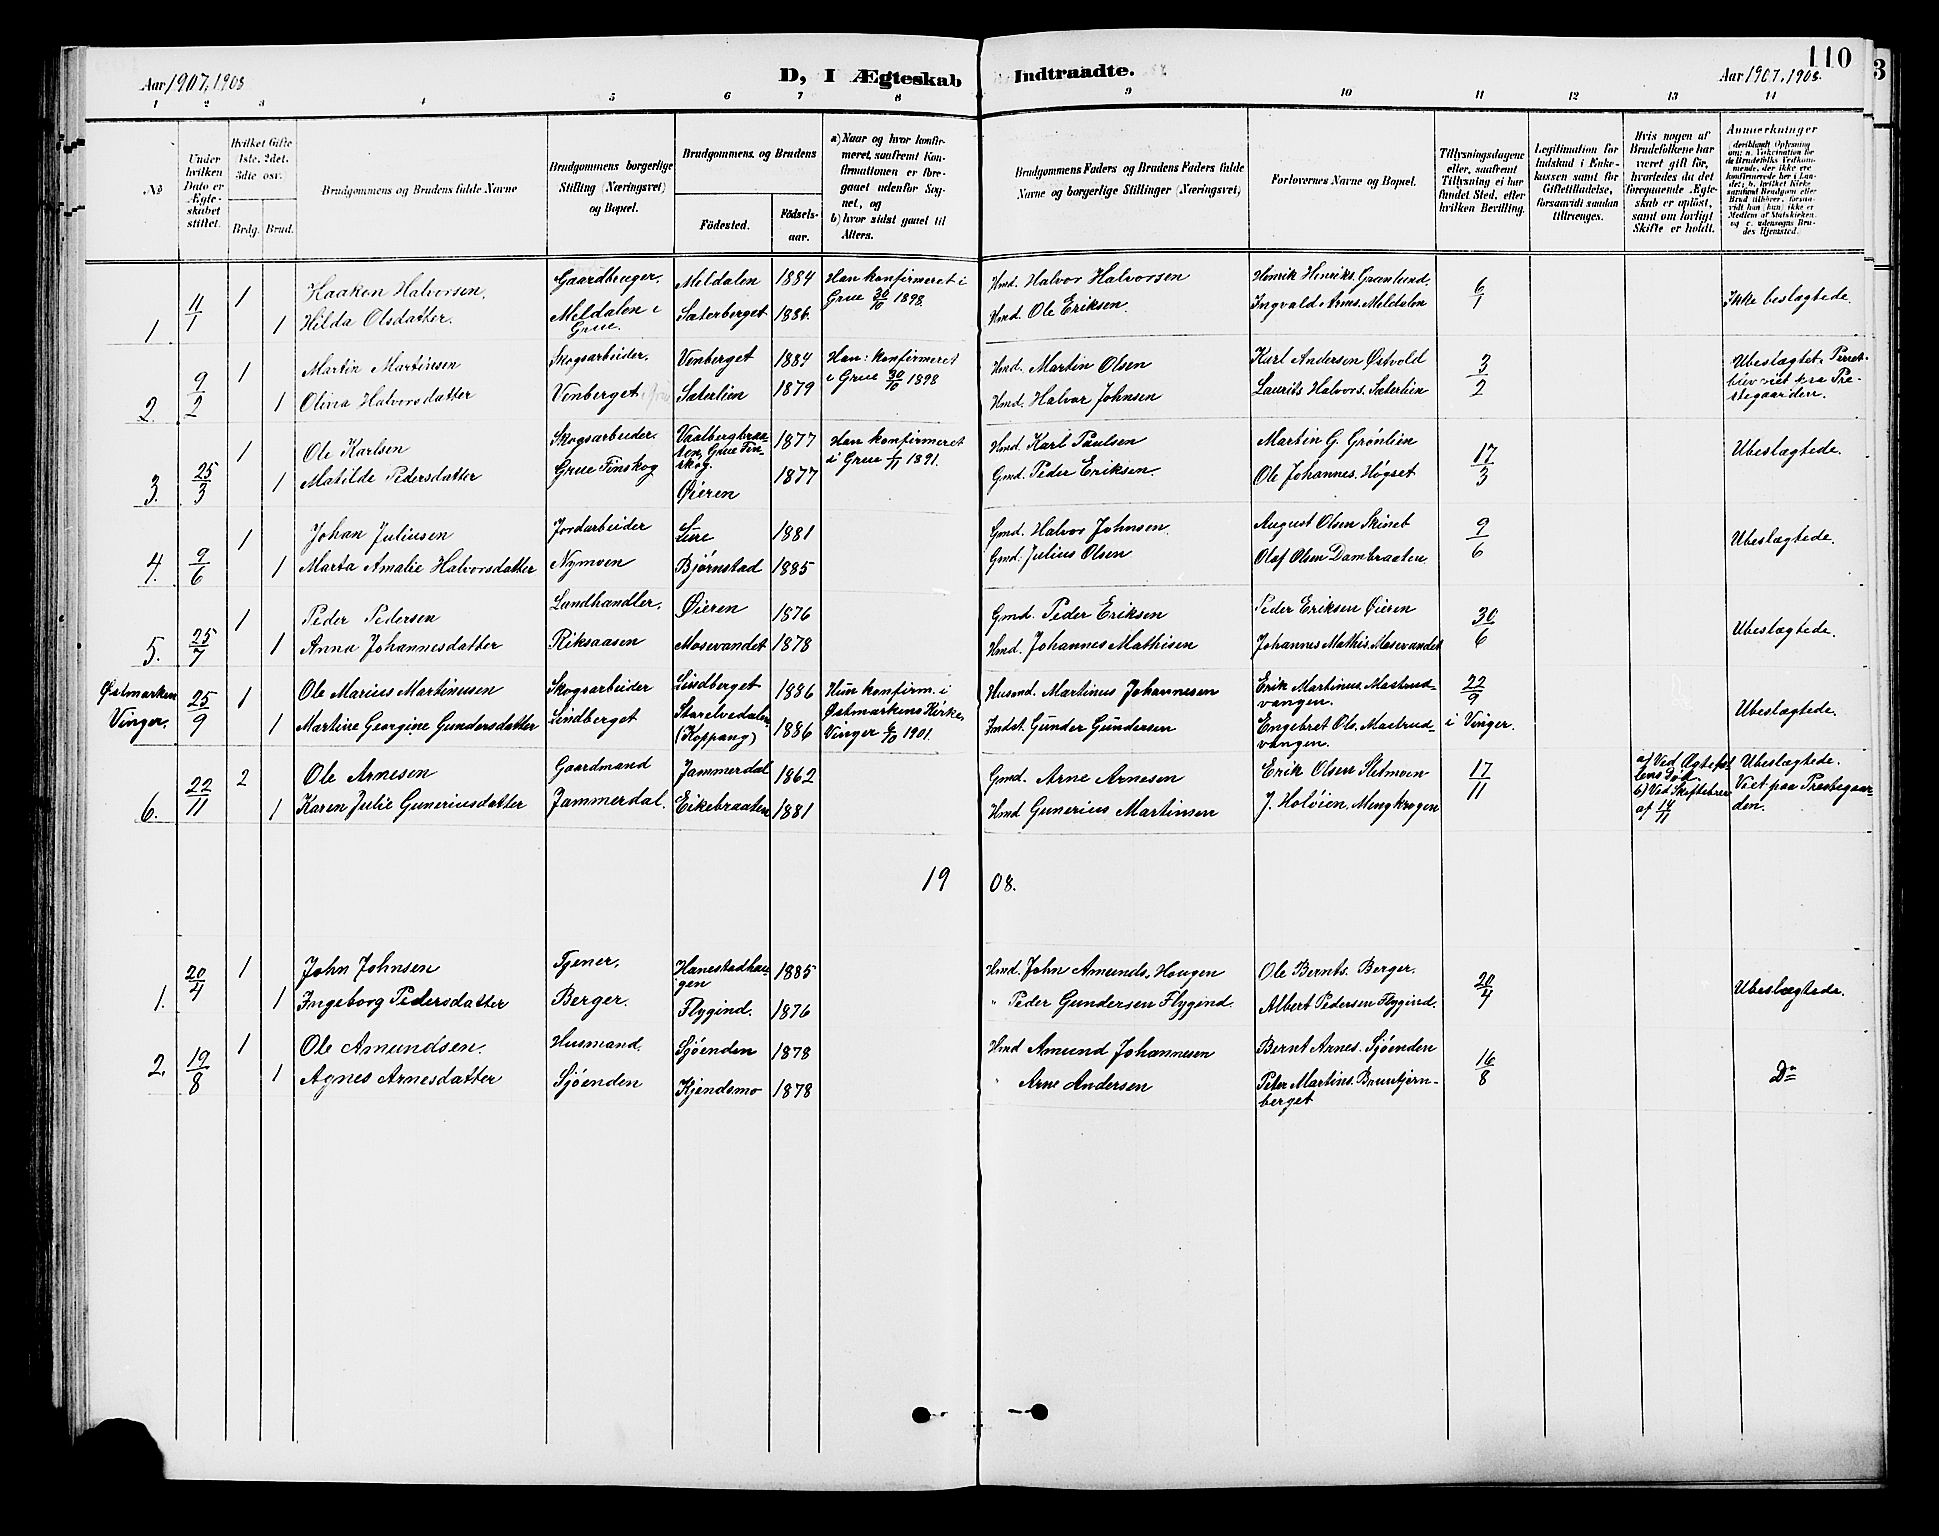 Aar 1907, 1908
D, I Ægteskab Indtraadte.
110
Aar 1907, 1908.
3
1 2 3 4 5 6 7 8 9 10 11 12 13 14
No
Under hvilken Dato er Ægteskabet stiftet.
Hvilket Gifte 1ste, 2det, 3die osv.
Brdg. Brud.
Brudgommens og Brudens fulde Navne
Brudgommens borgerlige Stilling (Næringsvei) og Bopæl.
Brudgommens og Brudens
Födested.
Födselsaar.
a) Naar og hvor konfirmeret, saafremt Konfirmationen er foregaaet udenfor Sognet, og
b) hvor sidst gaaet til Alters.
Brudgommens Faders og Brudens Faders fulde Navne og borgerlige Stillinger (Næringsvei)
Forlovernes Navne og Bopæl.
Tillysningsdagene eller, saafremt Tillysning ei har fundet Sted, efter hvilken Bevilling.
Legitimation for Indskud i Enkekassen samt for Giftetilladelse, forsaavidt saadan tiltrænges.
Hvis nogen af Brudefolkene har været gift før, hvorledes da det foregaaende Ægteskab er opløst, samt om lovligt Skifte er holdt.
Anmerkninger
1 4/1 1 Haaken Halvorsen. Gaardbruger. Meldalen 1884 Han konfirmeret i Grue 30/10 1898. Hmd. Halvor Halvorsen Henrik Henriks. Grønlund. 6/1 Ikke beslægtede.
1 Hilda Olsdatter. Meldalen i Grue. Sæterberget 1886. Hmd. Ole Eriksen. Ingvald Arns. Meldalen
2. 9/2 1 Martin Martinsen Skogsarbeider. Venberget 1884 Han: konfirmeret i Grue 30/10 1898 Hmd. Martin Olsen Karl Andersen Østvold 3/2 Ubeslægtet.
1 Olina Halvorsdatter Venberget Sæterlien 1879 Hmd. Halvor Johnsen Laurits Halvors. Sæterlien
3. 25/3 1 Ole Karlsen Skogsarbeider. Vaalbergbraaten, Grue Finskog. 1877 Han konfirmeret i Grue 1/11 1891. Hmd. Karl Paulsen Martin G. Grønlien 17/3 Ubeslægtede.
1 Matilde Pedersdatter Grue Finskog Øieren 1877 Gmd. Peder Eriksen. Ole Johannes. Høgset
4. 9/6 1 Johan Juliusen Jordarbeider Lere 1881 Gmd. Halvor Johnsen. August Olsen Skinet 9/6 Ubeslægtede.
1 Marta Amalie Halvorsdatter Nymoen Bjørnstad 1885 Gmd. Julius Olsen Olaf Olsen Dambraaten.
5. 25/7 1 Peder Pedersen Landhandler. Øieren 1876 Gmd. Peder Eriksen Peder Eriksen Øieren 30/6 Ubeslægtede.
1 Anna Johannesdatter Riksaasen Mosevandet 1878 Hmd. Johannes Mathisen Johannes Mathis. Mosevandet
Østmarken Vinger. 25/9 1 Ole Marius Martinusen Skogsarbeider Lindberget 1886 Hun konfirm. i Østmarkens Kirke, Vinger 6/10 1901. Husmd. Martinus Johannesen Erik Martinus. Mastrudvangen. 22/9 i Vinger. Ubeslægtede.
1 Martine Georgine Gundersdatter Lindberget Storelvedalen (Koppang) 1886 Indst. Gunder Gundersen Engebret Ols. Mastrudvangen.
6. 22/11 2 Ole Arnesen Gaardmand Jammerdal 1862 Gmd. Arne Arnesen Erik Olsen Sletmoen 17/11 a) Ved Ægtefællens Død. b) Ved Skiftebrev af 14/11 Ubeslægtede. Viet paa Præstegaarden.
1 Karen Julie Gunneriusdatter Jammerdal. Eikebraaten 1881 Hmd Gunerius Martinsen J. Holøien, Mengkrogen
19 08.
1. 20/4 1 John Johnsen Tjener. Hanestadhaugen 1885 Hmd. John Amunds. Haugen Ole Bernts. Berger. 20/4 Ubeslægtede.
1 Ingeborg Pedersdatter Berger. Flygind. 1876 " Peder Gundersen Flygind. Albert Pedersen Flygind.
2. 19/8 1 Ole Amundsen. Husmand. Sjøenden 1878 Hmd Amund Johannesen Bernt Arnes. Sjøenden 16/8 Do
1 Agnes Arnesdatter Sjøenden Kjendsmo 1878 " Arne Andersen Peter Martins. Bruntjernberget